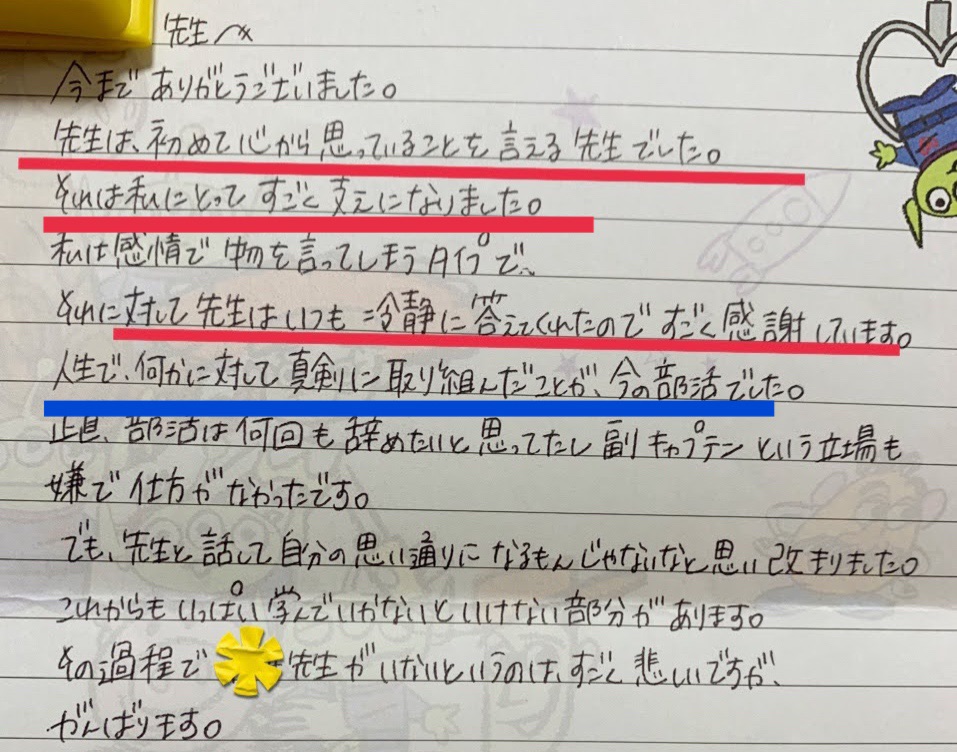 先生へ
今までありがとうございました。
先生は、初めて心から思っていることを言える先生でした。
それは私にとってすごく支えになりました。
私は感情で物を言ってしまうタイプで、
それに対して先生はいつも冷静に答えてくれたのですごく感謝しています。
人生で、何かに対して真剣に取り組んだことが、今の部活でした。
正直、部活は何回も辞めたいと思ってたし副キャプテンという立場も
嫌で仕方がなかったです。
でも、先生と話して自分の思い通りになるもんじゃないなと思い改まりました。
これからもいっぱい学んでいかないといけない部分があります。
その過程で 先生がいないというのは、すごく悲しいですが、
がんばります。